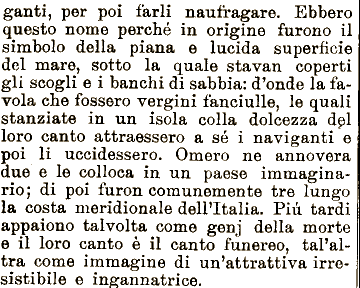 ganti, per poi farli naufragare. Ebbero
questo nome perché in origine furono il
simbolo della piana e lucida superficie
del mare, sotto la quale stavan coperti
gli scogli e i banchi di sabbia: d'onde la fa-
vola che fossero vergini fanciulle, le quali
stanziate in un isola colla dolcezza del
loro canto attraessero a sé i naviganti e
poi li uccidessero. Omero ne annovera
due e le colloca in un paese immagina-
rio; di poi furon comunemente tre lungo
la costa meridionale dell'Italia. Piú tardi
appaiono talvolta come genj della morte
e il loro canto è il canto funereo, tal'al-
tra come immagine di un'attrattiva irre-
sistibile e ingannatrice.